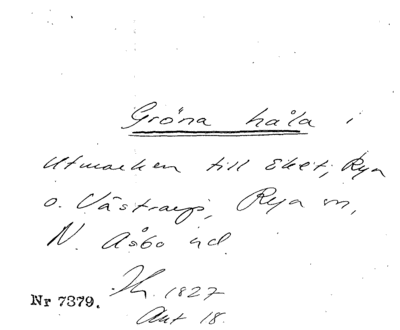 Gröna håla i
utmarken till Eket, Rya
o. Västraryd, Rya sn,
N. Åsbo hd.
Nr 7379. 1827
Akt 18.